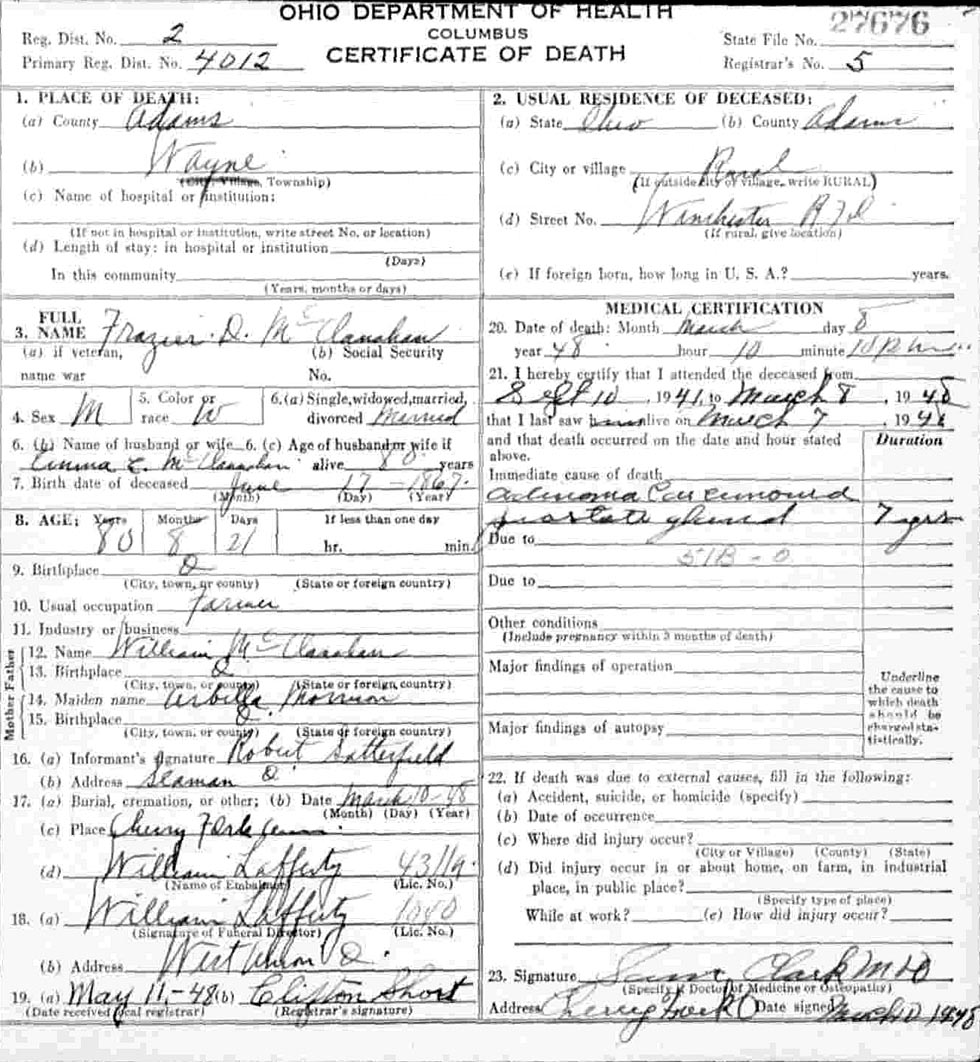 OHIO DEPARTMENT OF HEALTH
COLUMBUS
CERTIFICATE OF DEATH
Reg. Dist. No. 2
Primary Reg. Dist. No. 4012
27676
State File No.
Registrar's No. 5
1. PLACE OF DEATH:
(a) County Adams
(b) Wayne
(City, Village, Township)
(c) Name of hospital or institution:
(If not in hospital or institution, write street No. or location)
(d) Length of stay: in hospital or institution
(Days)
In this community
(Years, months or days)
2. USUAL RESIDENCE OF DECEASED:
(a) State Ohio (b) County Adams
(c) City or village Rural
(If outside city or village, write RURAL)
(d) Street No. Winchester RFD
(If rural, give location)
(e) If foreign born, how long in U. S. A.? years.
3. FULL NAME Frazier D. McClanahan
(a) if veteran, name war
(b) Social Security No.
4. Sex M
5. Color or race W
6. (a) Single, widowed, married, divorced Married
6. (b) Name of husband or wife 6. (c) Age of husband or wife if
Emma E. McClanahan alive 80 years
7. Birth date of deceased June 17 - 1867
(Month) (Day) (Year)
8. AGE: Years Months Days If less than one day
80 8 21 hr. min.
9. Birthplace O
(City, town, or county) (State or foreign country)
10. Usual occupation Farmer
11. Industry or business
Father
12. Name William McClanahan
13. Birthplace O
(City, town, or county) (State or foreign country)
Mother
14. Maiden name Arbilla Morrison
15. Birthplace O.
(City, town, or county) (State or foreign country)
16. (a) Informant's signature Robert Satterfield
(b) Address Seaman O.
17. (a) Burial, cremation, or other; (b) Date March 10-48
(Month) (Day) (Year)
(c) Place Cherry Fork Cem.
(d) William Lafferty 4311a.
(Name of Embalmer) (Lic. No.)
18. (a) William Lafferty 1040
(Signature of Funeral Director) (Lic. No.)
(b) Address West Union O.
19. (a) May 11,-48 (b) Clifton Short
(Date received local registrar) (Registrar's signature)
MEDICAL CERTIFICATION
20. Date of death: Month March day 8
year 48 hour 10 minute 10 P.m.
21. I hereby certify that I attended the deceased from
Sept 10, 1941, to March 8, 1948
that I last saw alive on March 7, 1948
and that death occurred on the date and hour stated above.
Duration
Immediate cause of death
Adenoma Carcinoma
prostate gland 7 yrs
Due to
51B - 0
Due to
Other conditions
(Include pregnancy within 3 months of death)
Major findings of operation
Major findings of autopsy
Underline the cause to which death should be charged statistically.
22. If death was due to external causes, fill in the following:
(a) Accident, suicide, or homicide (specify)
(b) Date of occurrence
(c) Where did injury occur?
(City or Village) (County) (State)
(d) Did injury occur in or about home, on farm, in industrial
place, in public place?
(Specify type of place)
While at work? (e) How did injury occur?
23. Signature Sam Clark MD
(Specify if Doctor of Medicine or Osteopathy)
Address Cherry Fork O Date signed March 10 1948